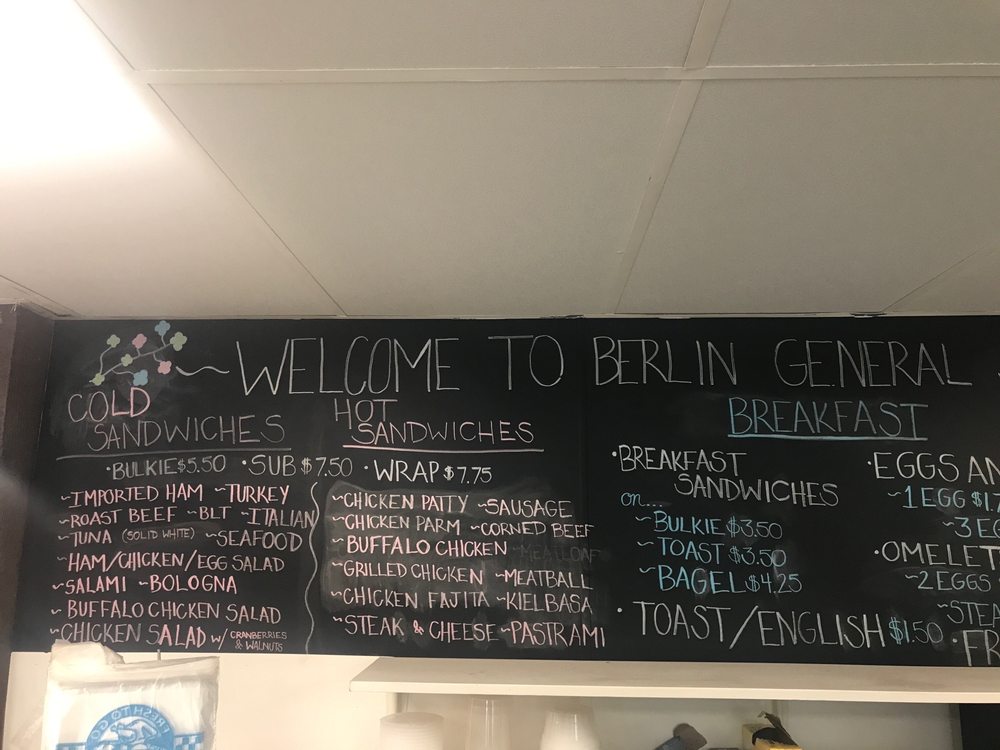 WELCOME TO BERLIN GENERAL
COLD
SANDWICHES
HOT
SANDWICHES
·BULKIE $5.50 ·SUB $7.50 ·WRAP $7.75
~IMPORTED HAM ~TURKEY
~ROAST BEEF ~BLT ~ITALIAN
~TUNA (SOLID WHITE) ~SEAFOOD
~HAM/CHICKEN/EGG SALAD
~SALAMI ~BOLOGNA
~BUFFALO CHICKEN SALAD
~CHICKEN SALAD W/ CRANBERRIES
& WALNUTS
~CHICKEN PATTY ~SAUSAGE
~CHICKEN PARM ~CORNED BEEF
~BUFFALO CHICKEN MEATLOAF
~GRILLED CHICKEN ~MEATBALL
~CHICKEN FAJITA ~KIELBASA
~STEAK & CHEESE ~PASTRAMI
BREAKFAST
·BREAKFAST
SANDWICHES
on...
~BULKIE $3.50
~TOAST $3.50
~BAGEL $4.25
·TOAST/ENGLISH $1.50
·EGGS AN
~1 EGG $1.7
~3 EG
·OMELET
~2 EGGS
~STEA
·FR
FRESH TO GO